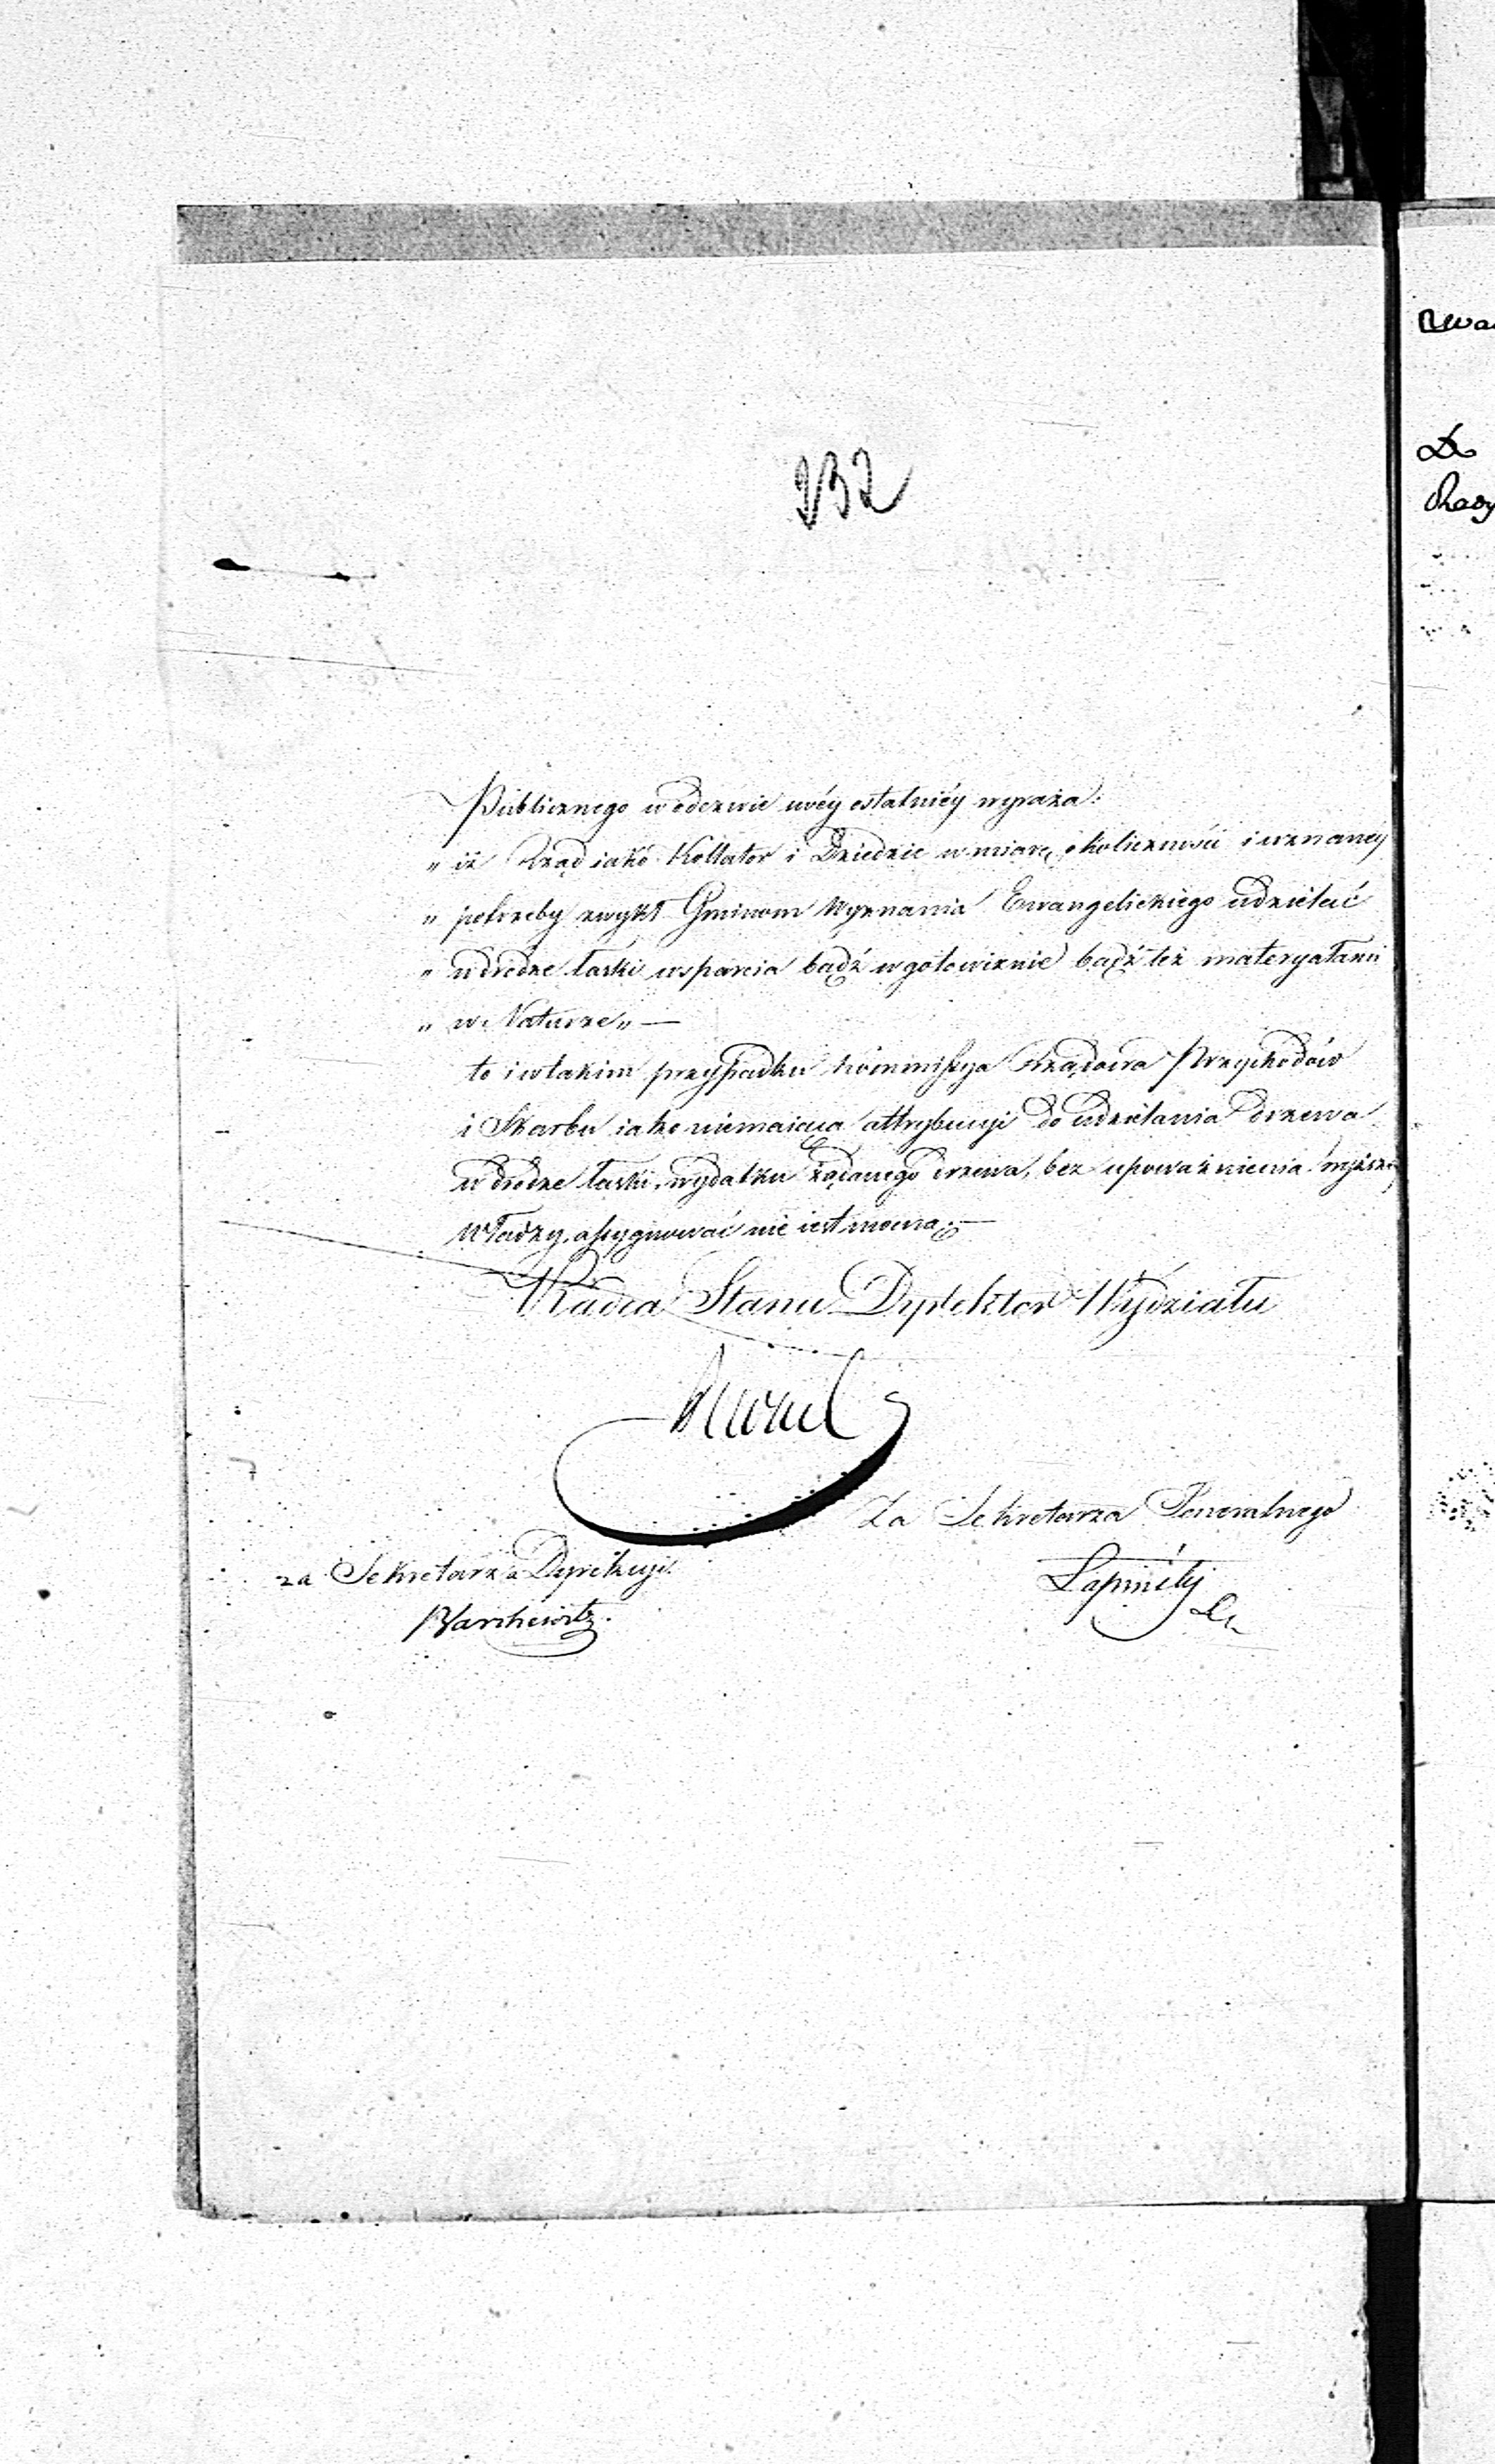 232
Publicznego w odezwie swéy ostatniéy wyraża:
„ iż Rząd iako Kollator i Dziedzic w miarę okoliczności i uznanéy
„ potrzeby zwykł Gminom Wyznania Ewangelickiego udzielać
„ w drodze łaski wsparcia bądź w gotowiznie bądź też materyałami
„ w Naturze„ —
to i w takim przypadku Kommissya Rządowa Przychodów
i Skarbu iako niemaiąca attrybucyi do udzielania drzewa
w drodze łaski, wydatku żądanego drzewa, bez upoważnienia wyższéy
Władzy, assygnować nie iest mocna. —
Radca Stanu Dyrektor Wydziału
Za Sekretarza Generalnego
za Sekretarza Dyrekcyi